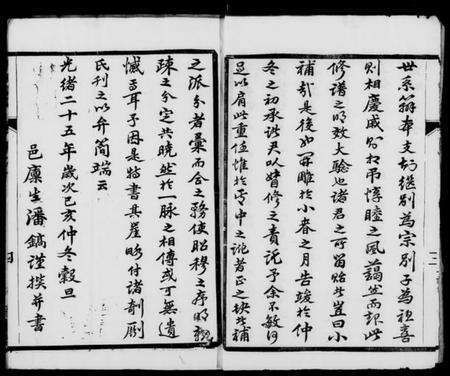 世系辨本支彰繼別為宗別子為祖喜
則相慶戚則相弔惇睦之風藹然而昭此
修譜之明效大驗也諸君之所留貽豈曰小
補哉是後始開雕於小春之月告竣於仲
冬之初承諸君以督修之責託予余不敏何
足以肩此重任惟於旁中之訛者正之缺者補
之派分者彙而合之務使昭穆之序明親
疎之分定共曉然於一脉之相傳或可無遺
憾耳予因是姑書其崖略付諸剞劂
氏刊之以弁簡端云
光緒二十五年歲次己亥仲冬穀旦
邑廩生潘鎬謹撰并書